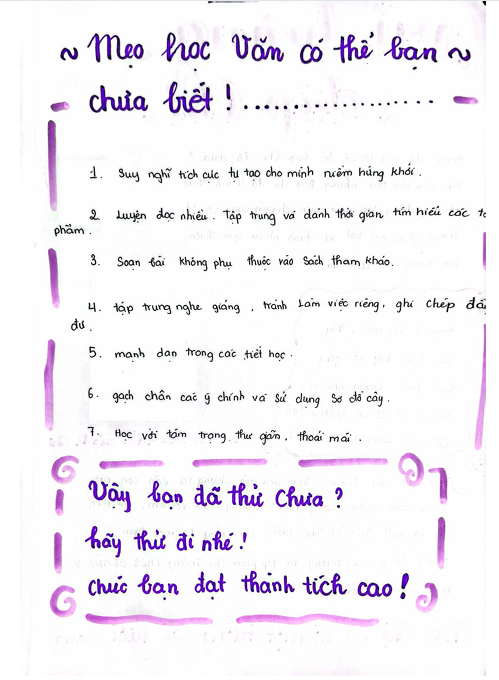 ~ Mẹo học Văn có thể bạn ~
chưa biết! ....................
1. Suy nghĩ tích cực tự tạo cho mình niềm hứng khởi.
2. Luyện đọc nhiều. Tập trung và dành thời gian tìm hiểu các tá
phẩm.
3. Soạn bài không phụ thuộc vào sách tham khảo.
4. tập trung nghe giảng, tránh làm việc riêng, ghi chép đầ
đủ.
5. mạnh dạn trong các tiết học.
6. gạch chân các ý chính và sử dụng sơ đồ cây.
7. Học với tâm trạng thư giãn, thoải mái.
Vậy bạn đã thử chưa?
hãy thử đi nhé!
chúc bạn đạt thành tích cao!